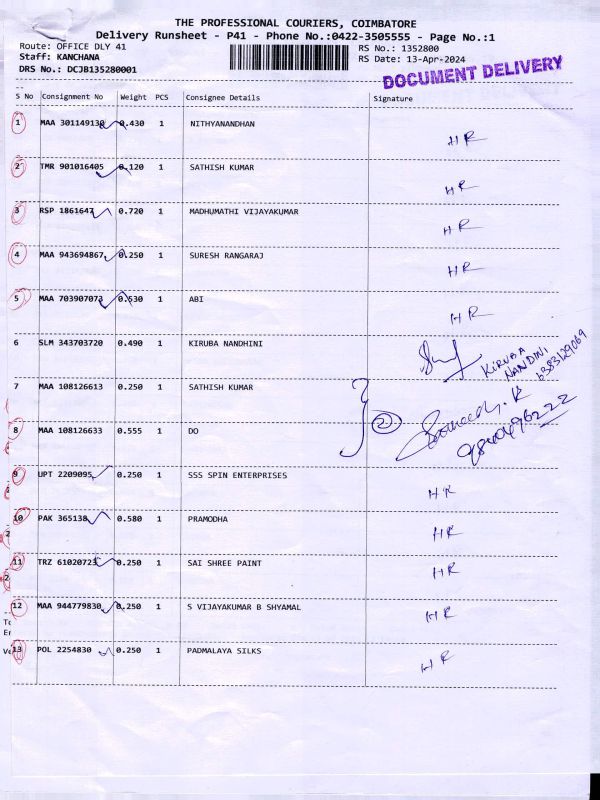 THE PROFESSIONAL COURIERS, COIMBATORE
Delivery Runsheet - P41 - Phone No.:0422-3505555 - Page No.:1
Route: OFFICE DLY 41 RS No.: 1352800
Staff: KANCHANA RS Date: 13-Apr-2024
DRS No.: DCJB135280001
DOCUMENT DELIVERY
S No Consignment No Weight PCS Consignee Details Signature
1 MAA 301149130 0.430 1 NITHYANANDHAN HR
2 TMR 901016405 0.120 1 SATHISH KUMAR HR
3 RSP 1861647 0.720 1 MADHUMATHI VIJAYAKUMAR HR
4 MAA 943694867 0.250 1 SURESH RANGARAJ HR
5 MAA 703907073 0.530 1 ABI HR
6 SLM 343703720 0.490 1 KIRUBA NANDHINI KIRUBA
NANDINI
6383129069
7 MAA 108126613 0.250 1 SATHISH KUMAR
2
8 MAA 108126633 0.555 1 DO
9 UPT 2209095 0.250 1 SSS SPIN ENTERPRISES HR
10 PAK 365138 0.580 1 PRAMODHA HR
11 TRZ 61020723 0.250 1 SAI SHREE PAINT HR
12 MAA 944779830 0.250 1 S VIJAYAKUMAR B SHYAMAL HR
13 POL 2254830 0.250 1 PADMALAYA SILKS HR